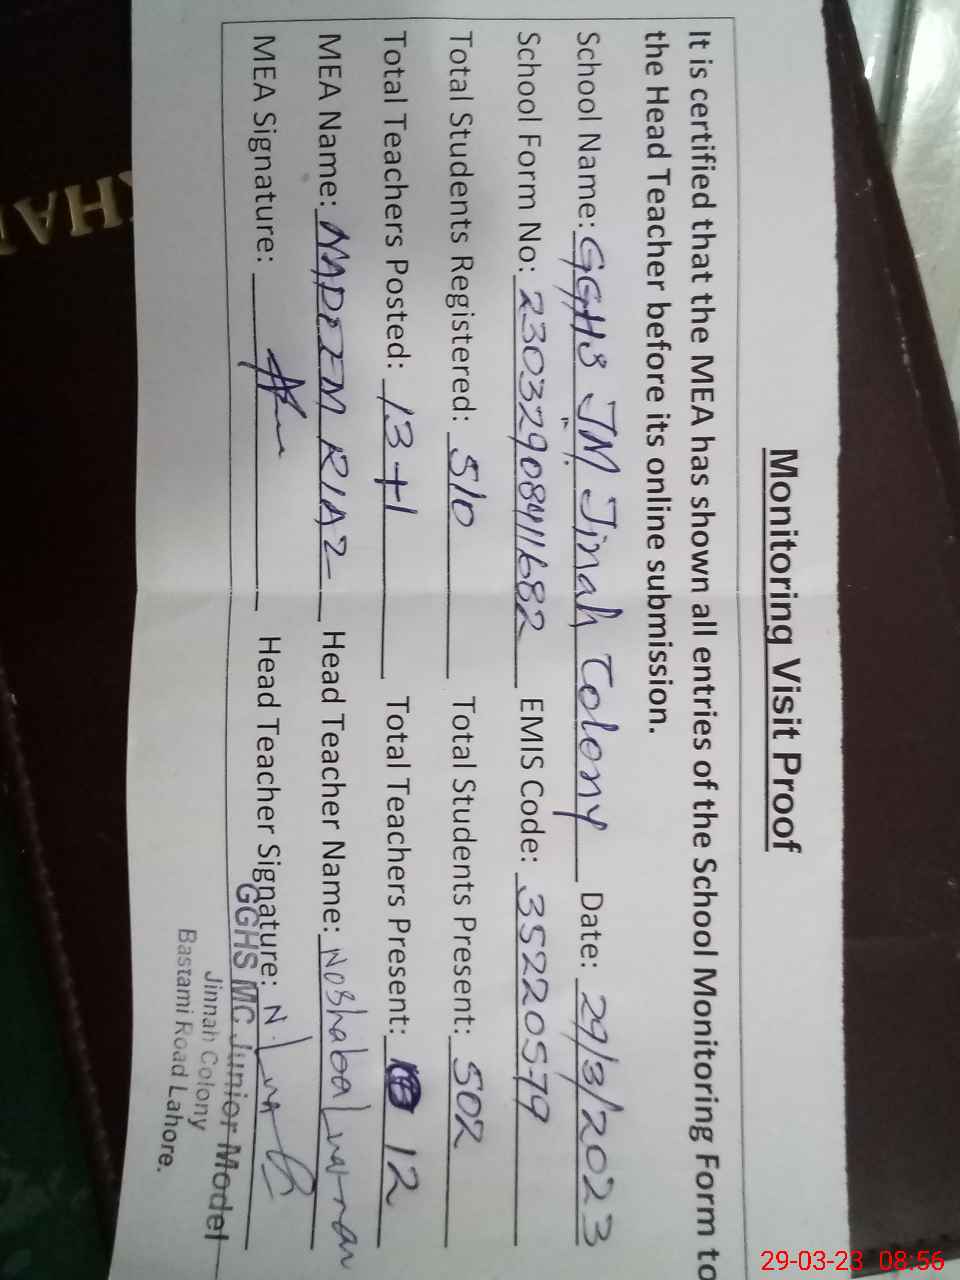 Monitoring Visit Proof
It is certified that the MEA has shown all entries of the School Monitoring Form to
the Head Teacher before its online submission.
School Name: GGHS JM Jinah Colony Date: 29/3/2023
School Form No: 2303290841682 EMIS Code: 35220579
Total Students Registered: 510 Total Students Present: 502
Total Teachers Posted: 13+1 Total Teachers Present: 12
MEA Name: NADEEM RIAZ Head Teacher Name: Noshaba
MEA Signature: Head Teacher Signature: N.
GGHS MC Junior Model
Jinnah Colony
Bastami Road Lahore.
KHAN
29-03-23 08:56